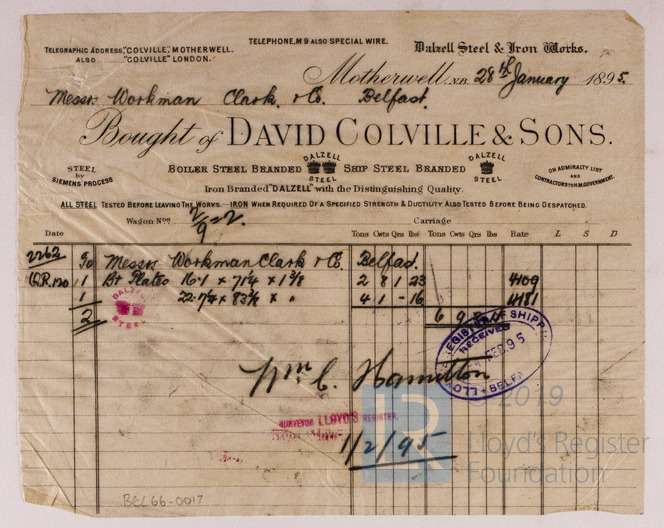 TELEPHONE, Mo 9 ALSO SPECIAL WIRE.
TELEGRAPHIC ADDRESS, "COLVILLE", MOTHERWELL.
ALSO "COLVILLE" LONDON.
Dalzell Steel & Iron Works.
Motherwell, N.B. 28th January 1895.
Messrs Workman Clark & Co. Belfast.
Bought of DAVID COLVILLE & SONS.
STEEL by SIEMENS' PROCESS
BOILER STEEL BRANDED DALZELL STEEL SHIP STEEL BRANDED DALZELL STEEL
ON ADMIRALTY LIST AND CONTRACTORS TO H.M. GOVERNMENT.
Iron Branded "DALZELL" with the Distinguishing Quality.
ALL STEEL TESTED BEFORE LEAVING THE WORKS. IRON WHEN REQUIRED OF A SPECIFIED STRENGTH & DUCTILITY ALSO TESTED BEFORE BEING DESPATCHED.
Wagon Nos 2/9 = 2. Carriage
Date Tons Cwts Qrs lbs Tons Cwts Qrs lbs Rate L S D
2262 To Messrs Workman Clark & Co. Belfast.
1 Br Plates 2 8 1 23 4109
1 4 1 - 16 4181
2 6 9
DALZELL STEEL
LLOYD'S REGISTER OF SHIPPING
RECEIVED
FEB 95
BELFAST
Wm C. Hamilton
SURVEYOR LLOYD'S REGISTER.
1/2/95
BEL66-0017
LR
© 2019
Lloyd's Register
Foundation